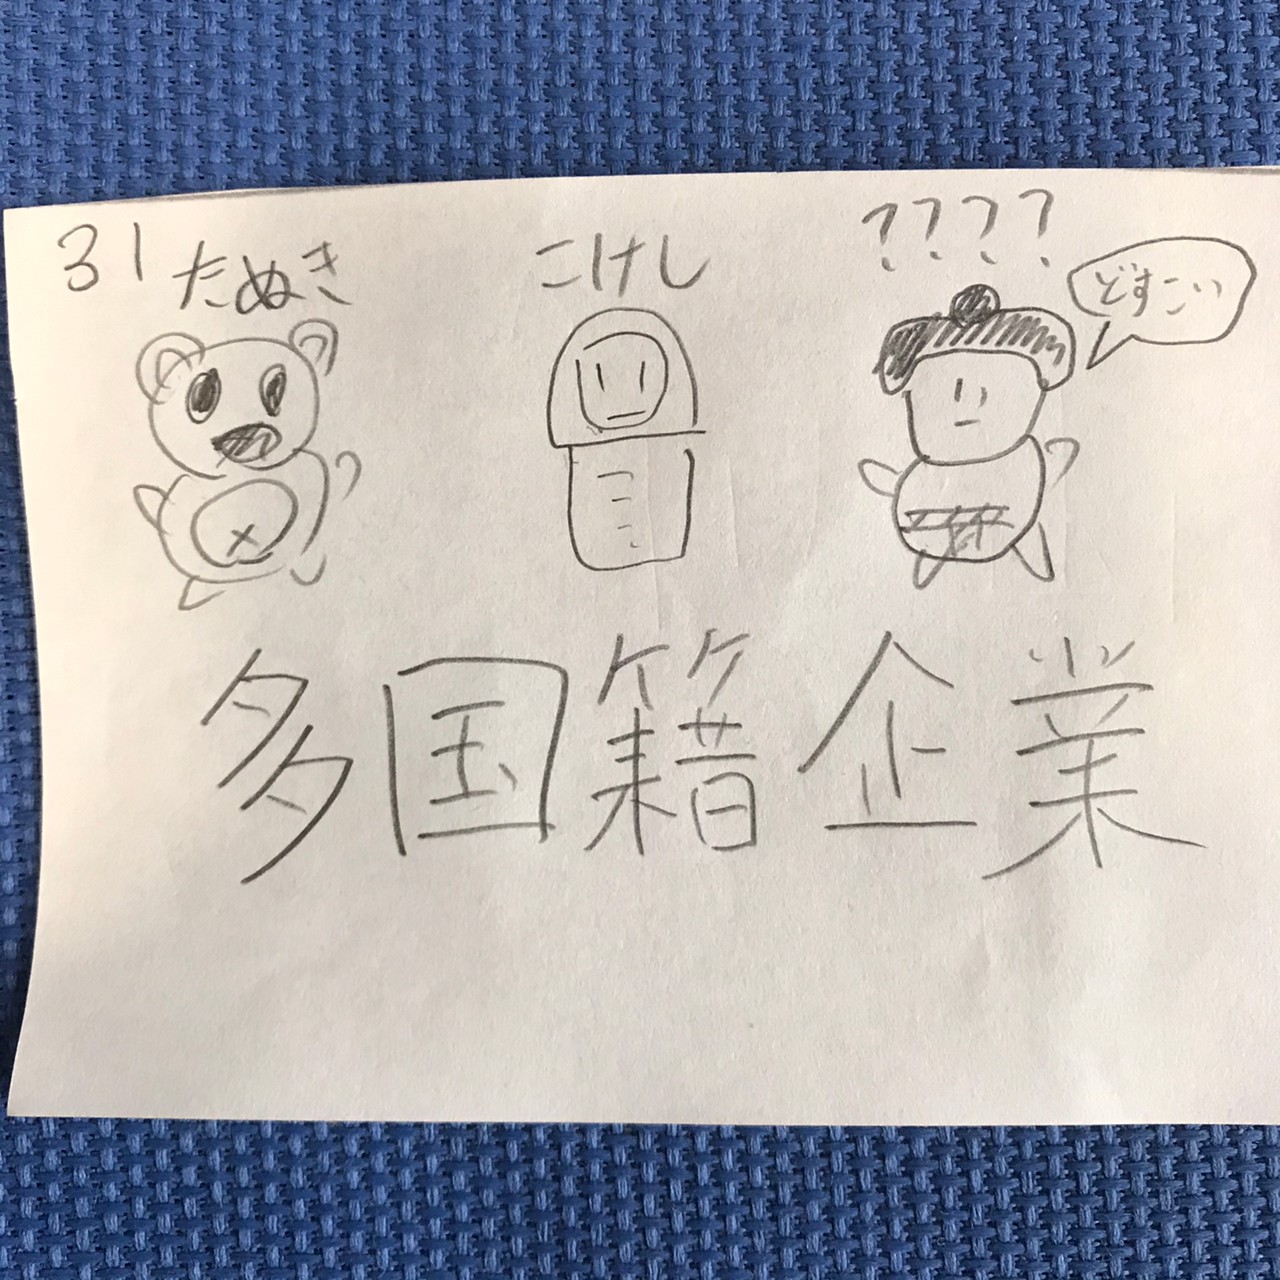 31 たぬき こけし ????
どすこい
多国籍企業